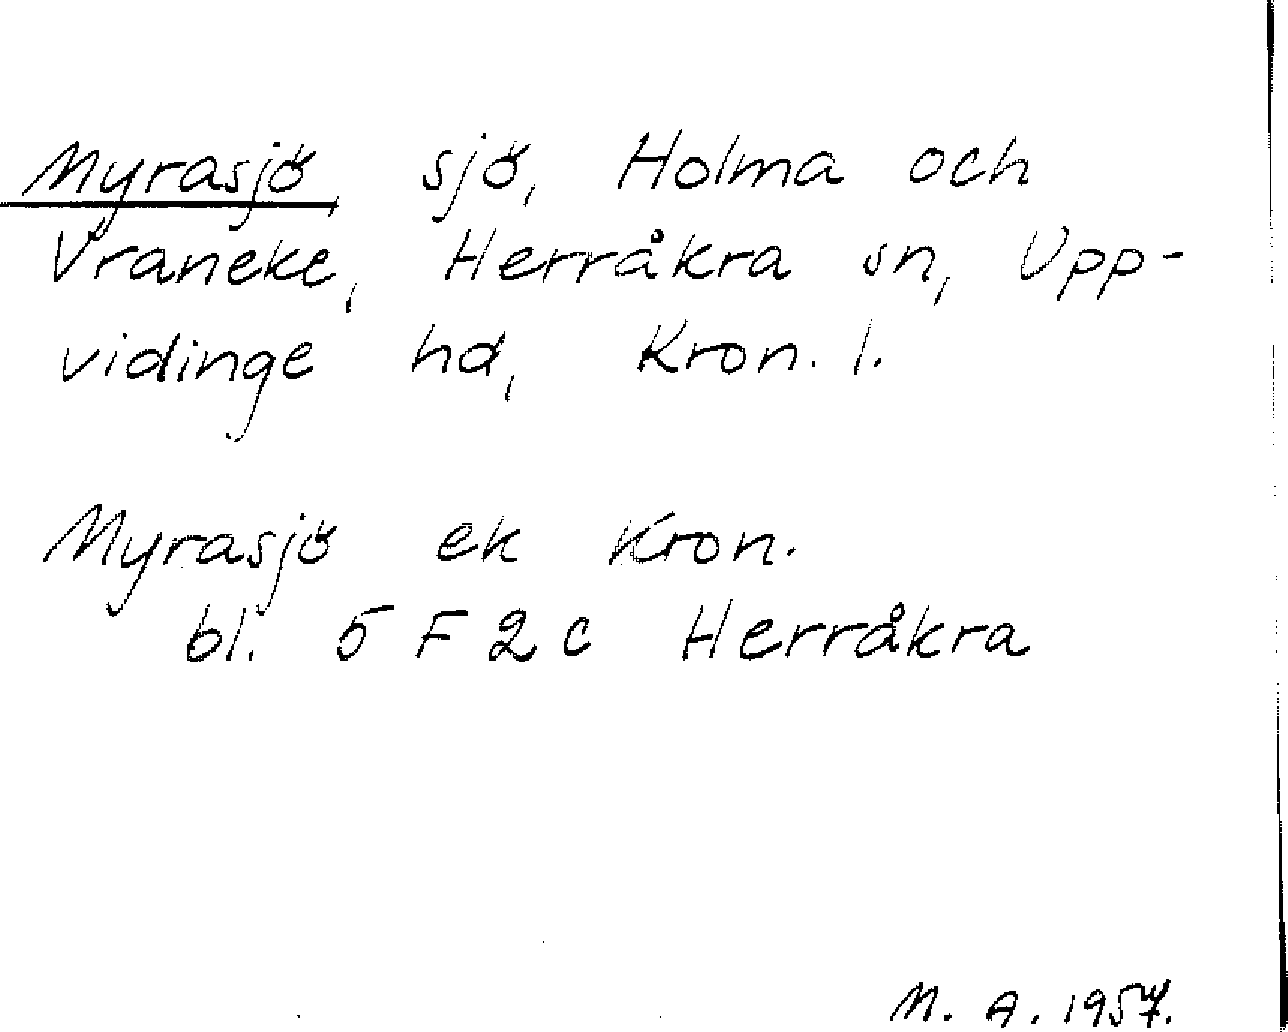 Myrasjö, sjö, Holma och
Vraneke, Herråkra sn, Upp-
vidinge hd, Kron. l.
Myrasjö ek Kron.
bl. 5 F 2 c Herråkra
M. A. 1957.